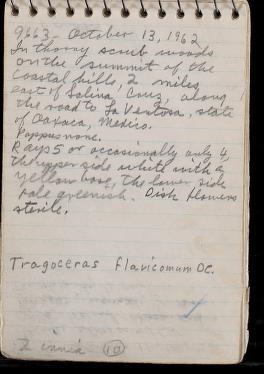 9663 - October 13, 1962
In thorny scrub woods
on the summit of the
coastal hills, 2 miles
east of Salina Cruz, along
the road to La Ventosa, state
of Oaxaca, Mexico.
Pappus none.
Rays 5 or occasionally only 4,
the upper side white with a
yellow base, the lower side
pale greenish. Disk flowers
sterile.
Tragoceras flavicomum DC.
Zinnia (10)